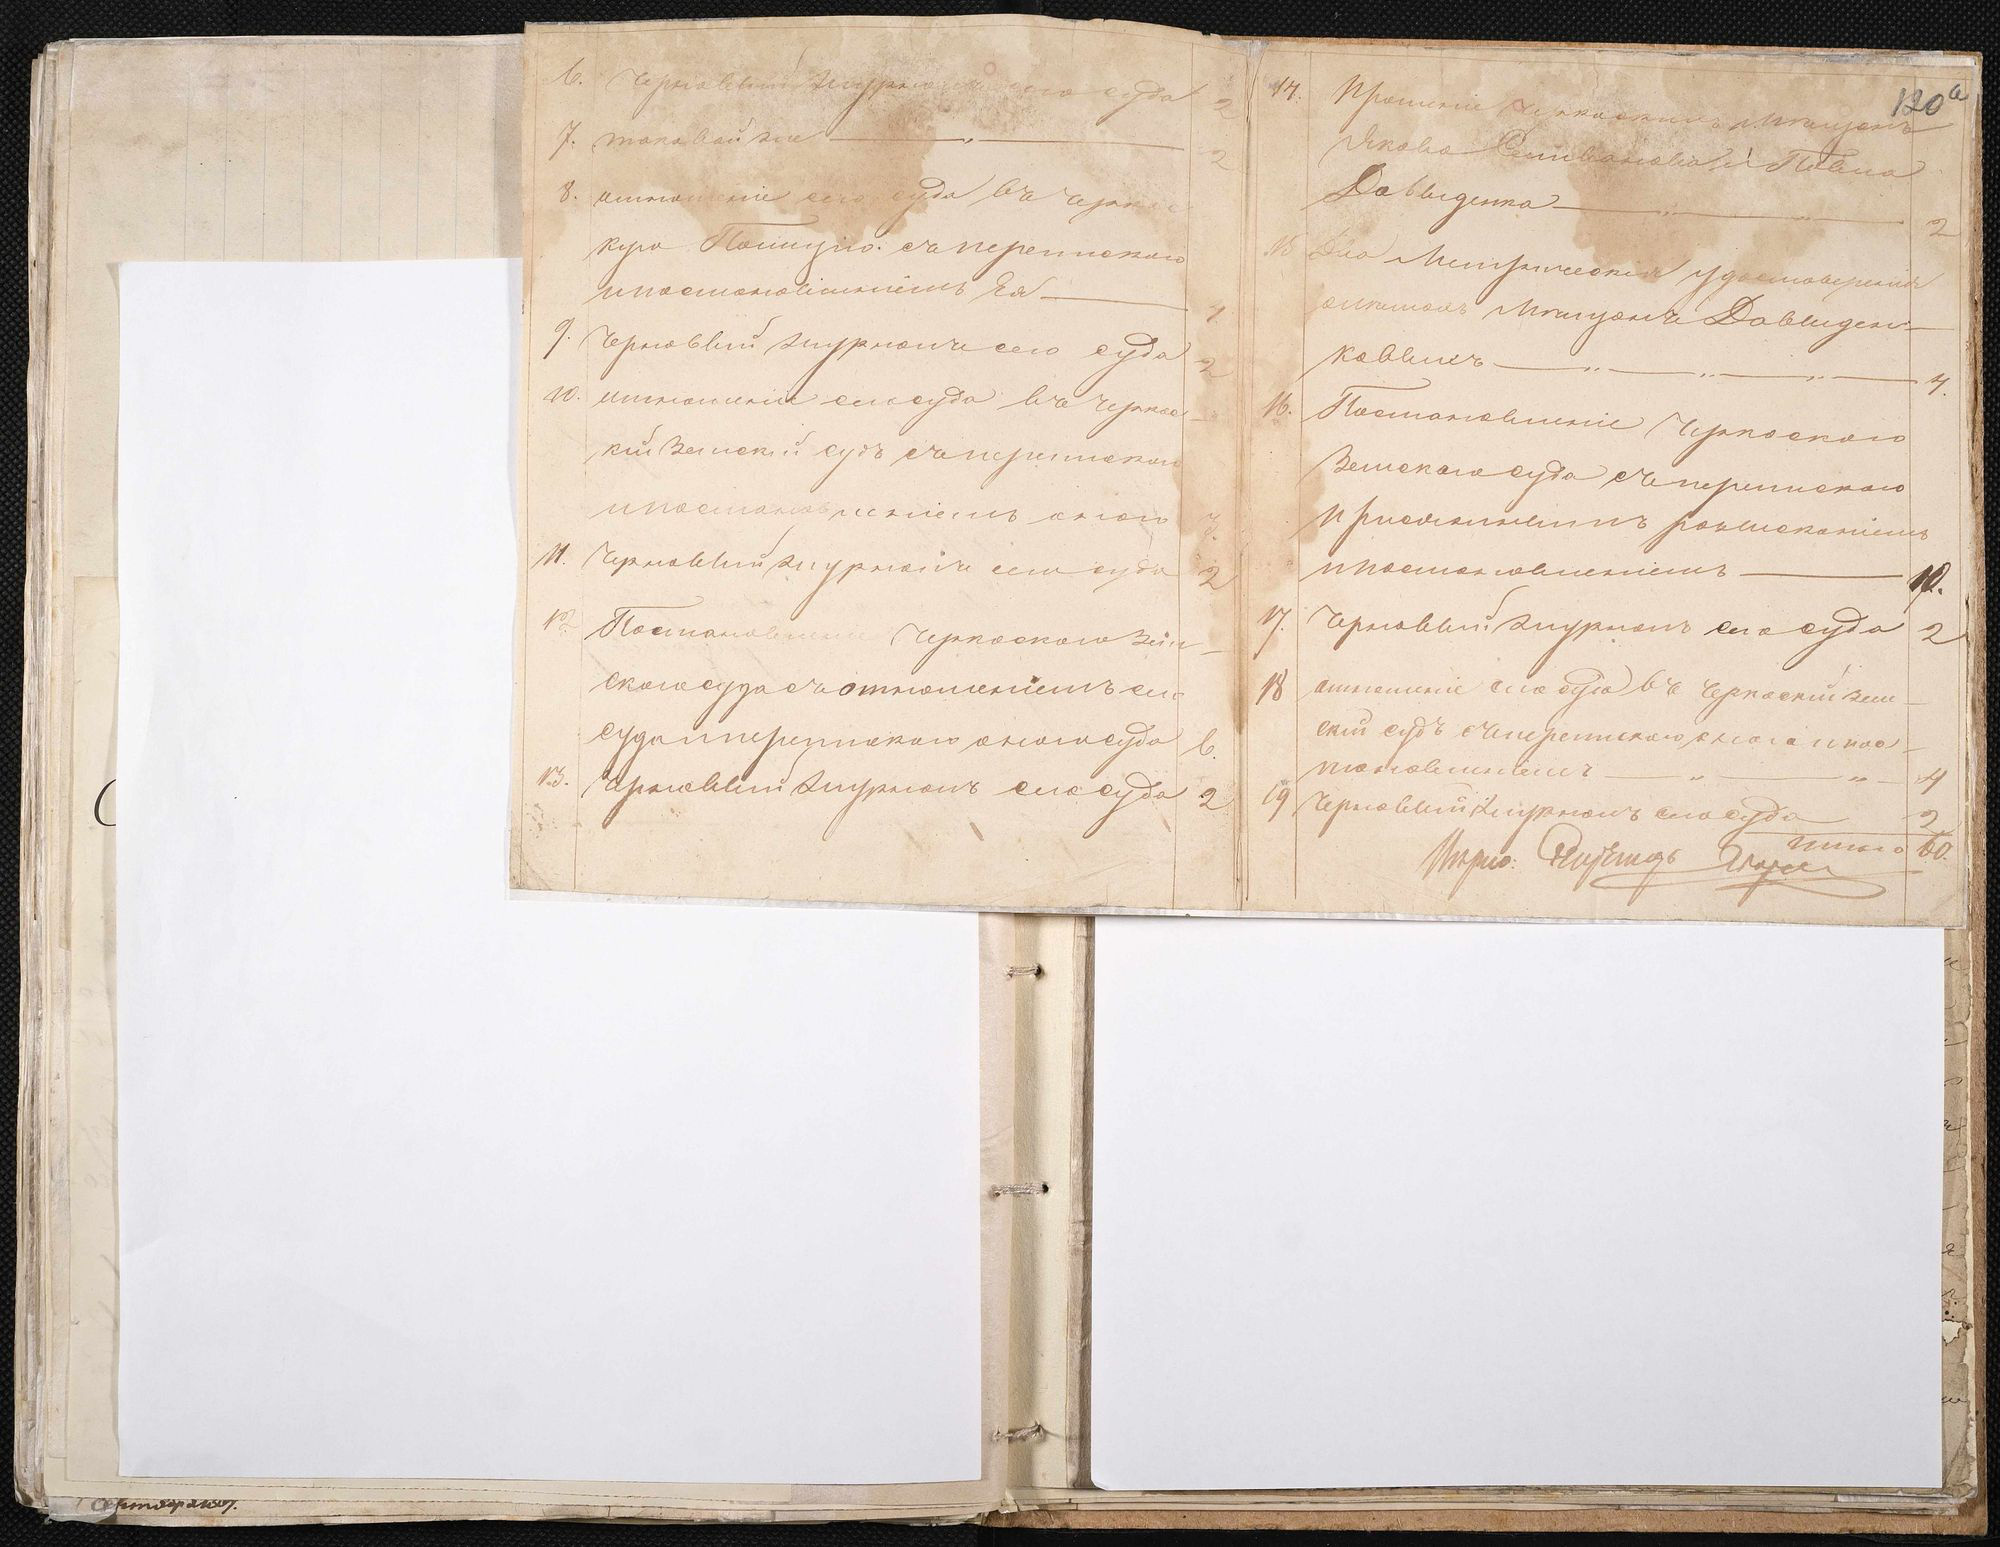 6. Черновый журналъ сего суда 2
7. таковый же — „ — 2
8. отношеніе сего суда въ Черкас
кую Полицію съ перепискою
и постановленіемъ Ея — 4.
9. Черновый журналъ сего суда 2
10. отношеніе сего суда въ Черкас-
кій Земскій судъ съ перепискою
и постановленіемъ оного 7.
11. Черновый журналъ сего суда 2
12. Постановленіе Черкаского Зем-
ского суда съ отношеніемъ сего
суда и перепискою оного суда 6.
13. Черновый журналъ сего суда 2
120а
14. Прошеніе Черкаскихъ Мѣщанъ
Якова и Павла
Давыденка — „ — „ — 2
15 Два Метрическія удостоверенія
Мѣщанъ Давиден-
ковыхъ — „ — „ — „ — 4.
16. Постановленіе Черкаского
Земского суда съ перепискою
присяжнымъ розысканіемъ
и постановленіемъ — 10.
17. Черновый журналъ сего суда 2
18 отношеніе сего суда въ Черкаскій Зем-
скій судъ съ перепискою оного и пос-
тановленіемъ — „ — „ — 4
19 Черновый журналъ сего суда 2
итого 60.